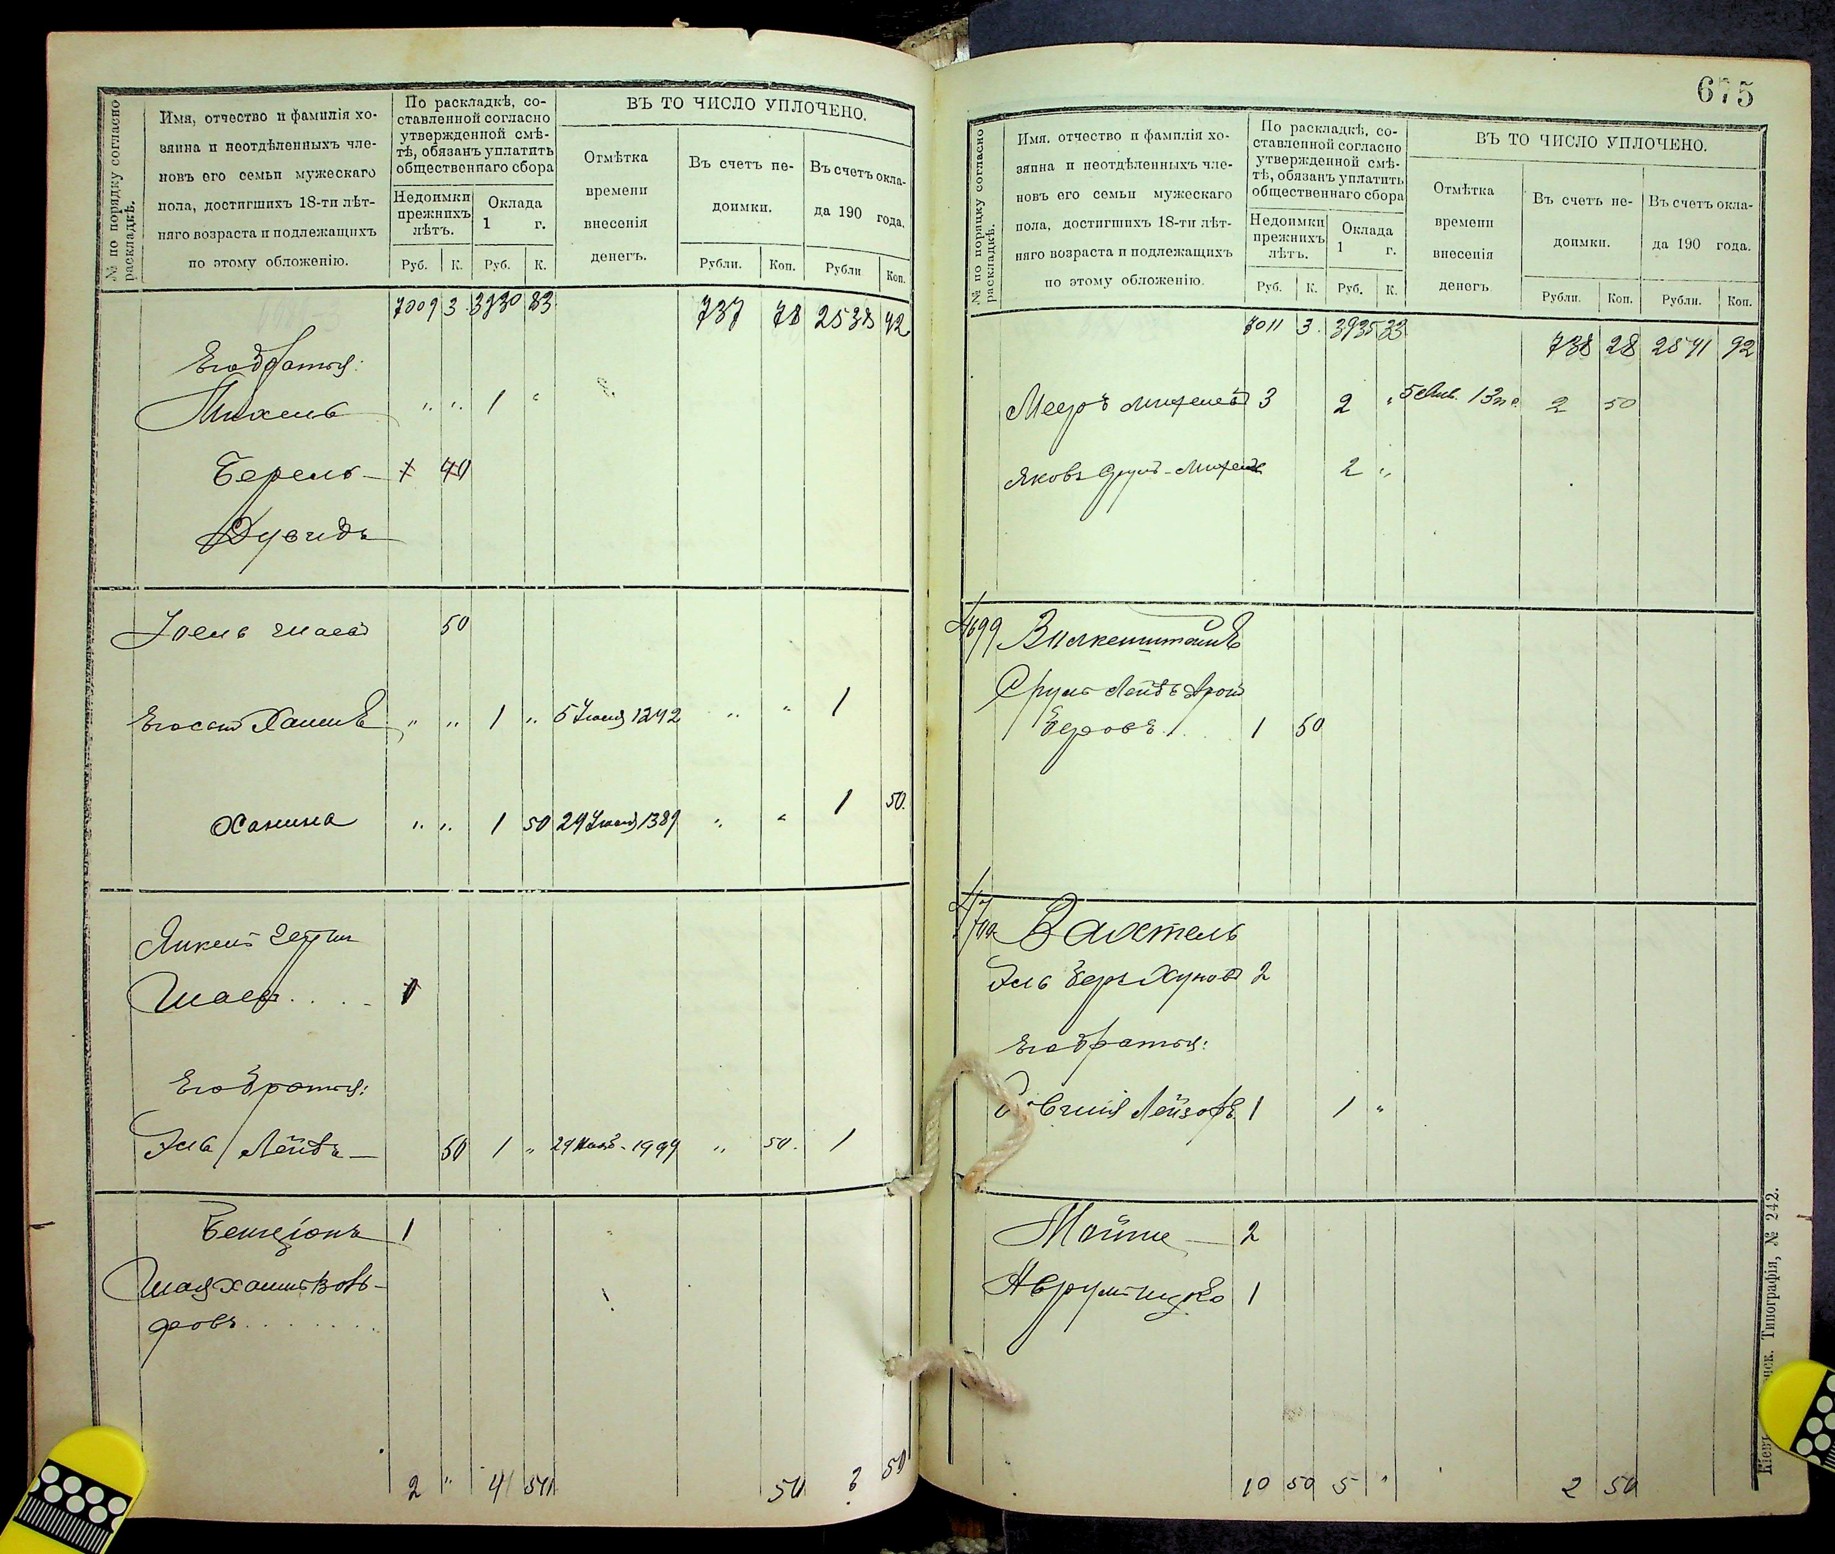 № по порядку согласно раскладкѣ.
Имя, отчество и фамилія хо-
зяина и неотдѣленныхъ чле-
новъ его семьи мужескаго
пола, достигшихъ 18-ти лѣт-
няго возраста и подлежащихъ
по этому обложенію.
По раскладкѣ, со-
ставленной согласно
утвержденной смѣ-
тѣ, обязанъ уплатить
общественнаго сбора
Недоимки
прежнихъ
лѣтъ.
Оклада
1 г.
Руб. К. Руб. К.
ВЪ ТО ЧИСЛО УПЛОЧЕНО.
Отмѣтка
времени
внесенія
денегъ.
Въ счетъ не-
доимки.
Въ счетъ окла-
да 190 года.
Рубли. Коп. Рубли Коп.
7009 3 3930 83 737 78 2538 42
Его братья:
Михель " " 1 "
Берель 1 40
Дувидъ
Іоель Шаев 50
Его сынъ Хаимъ " " 1 " 5 Іюня 1242 " " 1
Ханина " " 1 50 29 Іюня 1389 " " 1 50
Янкель
Шаев....
Его братья:
Эль Лейбъ 50 1 " 1999 " 50 1
Бенціонъ 1
Шая Хаимъ Вольфовъ
2 " 4 50 50 3 50
675
№ по порядку согласно раскладкѣ.
Имя, отчество и фамилія хо-
зяина и неотдѣленныхъ чле-
новъ его семьи мужескаго
пола, достигшихъ 18-ти лѣт-
няго возраста и подлежащихъ
по этому обложенію.
По раскладкѣ, со-
ставленной согласно
утвержденной смѣ-
тѣ, обязанъ уплатить
общественнаго сбора
Недоимки
прежнихъ
лѣтъ.
Оклада
1 г.
Руб. К. Руб. К.
ВЪ ТО ЧИСЛО УПЛОЧЕНО.
Отмѣтка
времени
внесенія
денегъ
Въ счетъ не-
доимки.
Въ счетъ окла-
да 190 года.
Рубли. Коп. Рубли. Коп.
7011 3 3935 33 738 28 2541 92
Мееръ Михелев 3 2 " 5 2 50
Яковъ Сруль-Михел 2 "
4699 Вилкенштейнъ
Сруль Лейбъ Арон
Беровъ. 1 50
4700 Вахтель
Эль Беръ Хунов 2
Его братья:
Лейзоръ 1 1 "
Мойше 2
Аврумъ Ицко 1
10 50 5 " 2 50
Типографія, № 242.